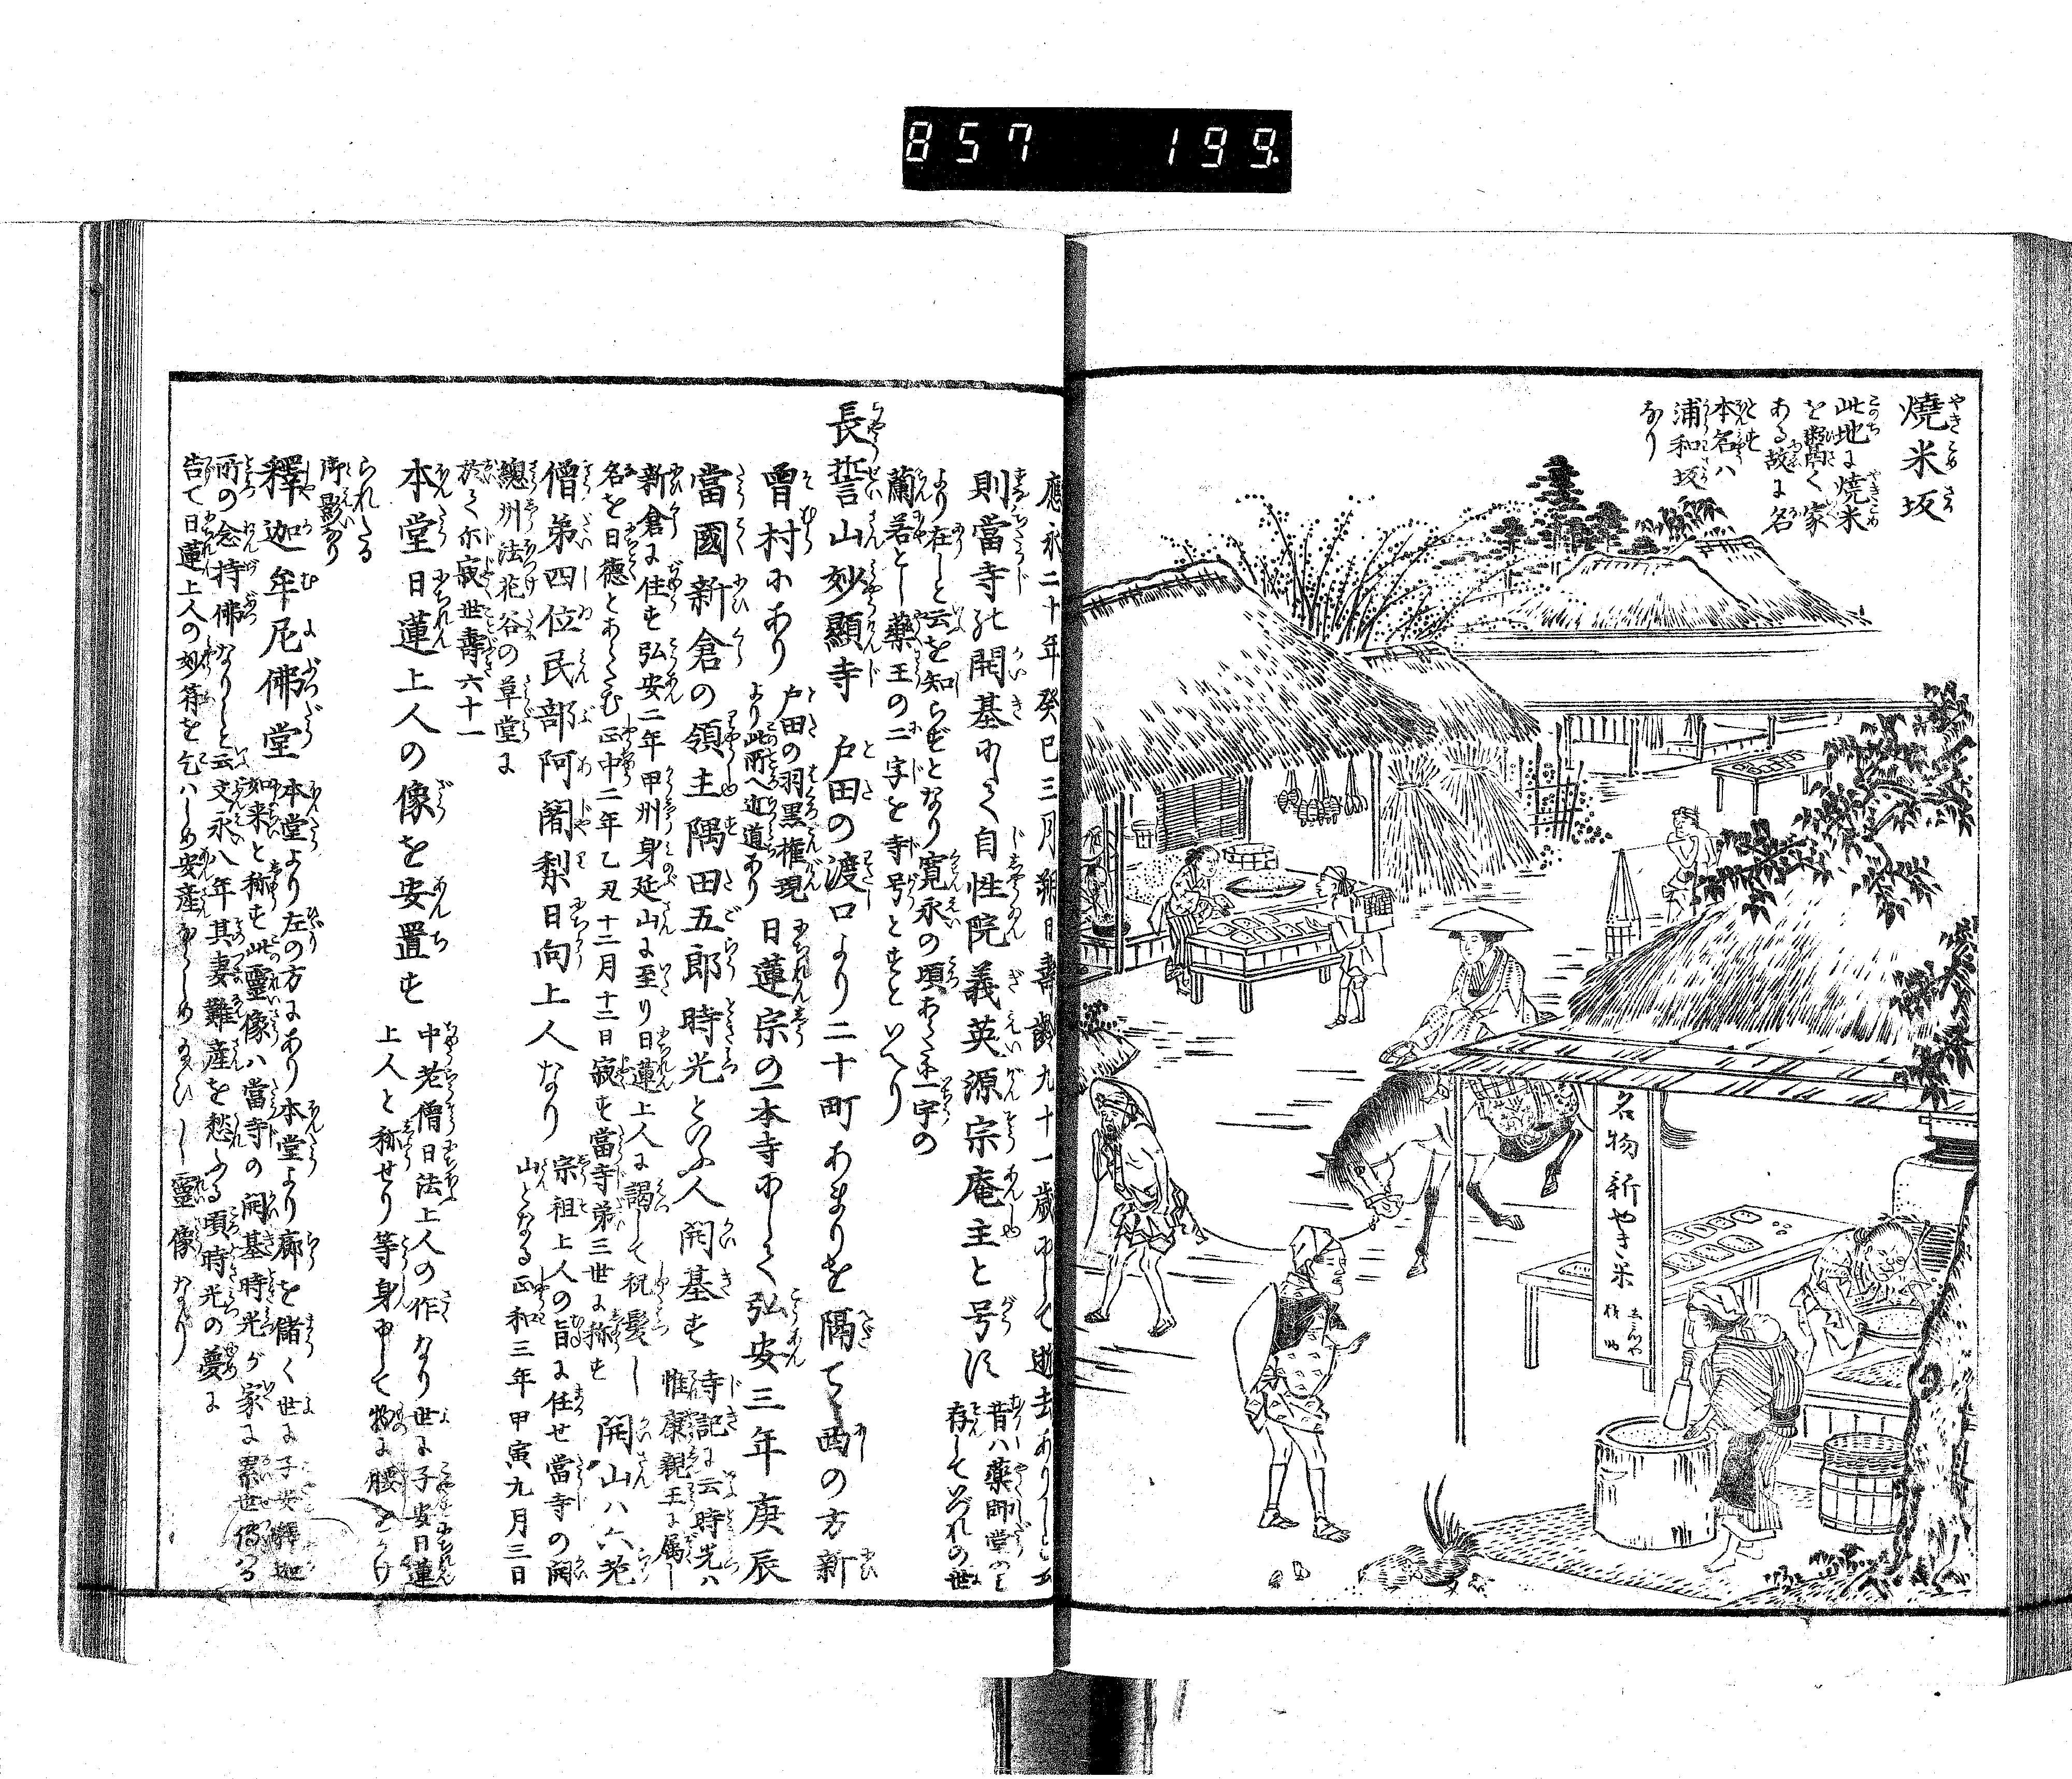 857 199
燒米坂
此地に燒米
を鬻く家
ある故に名
とす
本名ハ
浦和坂
なり
名物新やき米
應永二十年癸巳三月朔日壽齡九十一歳にして逝去ありしと云
則當寺の開基にして自性院義英源宗庵主と号す
昔ハ薬師堂のミ
存していづれの世
より在しと云を知らずとなり寛永の頃あらた一宇の
蘭若とし薬王の二字を寺号とすといへり
長誓山妙顯寺 戸田の渡口より二十町あまりを隔てゝ西の方新
曽村にあり
戸田の羽黒権現
より此所へ近道あり
日蓮宗の一本寺にして弘安三年庚辰
當國新倉の領主隅田五郎時光といふ人開基す
寺記に云時光ハ
惟康親王に属し
新倉に住す弘安二年甲州身延山に至り日蓮上人に謁して祝髪し
名を日徳とあらたむ正中二年乙丑十二月十二日寂す當寺第三世に称す
開山ハ六老
僧第四位民部阿闍梨日向上人なり
宗祖上人の旨に任せ當寺の開
山となる正和三年甲寅九月三日
總州法花谷の草堂に
於て示寂世壽六十一
本堂日蓮上人の像を安置す
中老僧日法上人の作なり世に子安日蓮
上人と称せり等身にして物に腰をかけ
られたる
御影なり
釋迦牟尼佛堂
本堂より左の方にあり本堂より廊を儲く世に子安釋迦
如来と称す此靈像ハ當寺の開基時光が家に累世傳はる
所の念持佛なりしと云文永八年其妻難産を愁ふる頃時光の夢に
告て日蓮上人の妙符を乞ハしめ安産なさしめ給ひし靈像なり